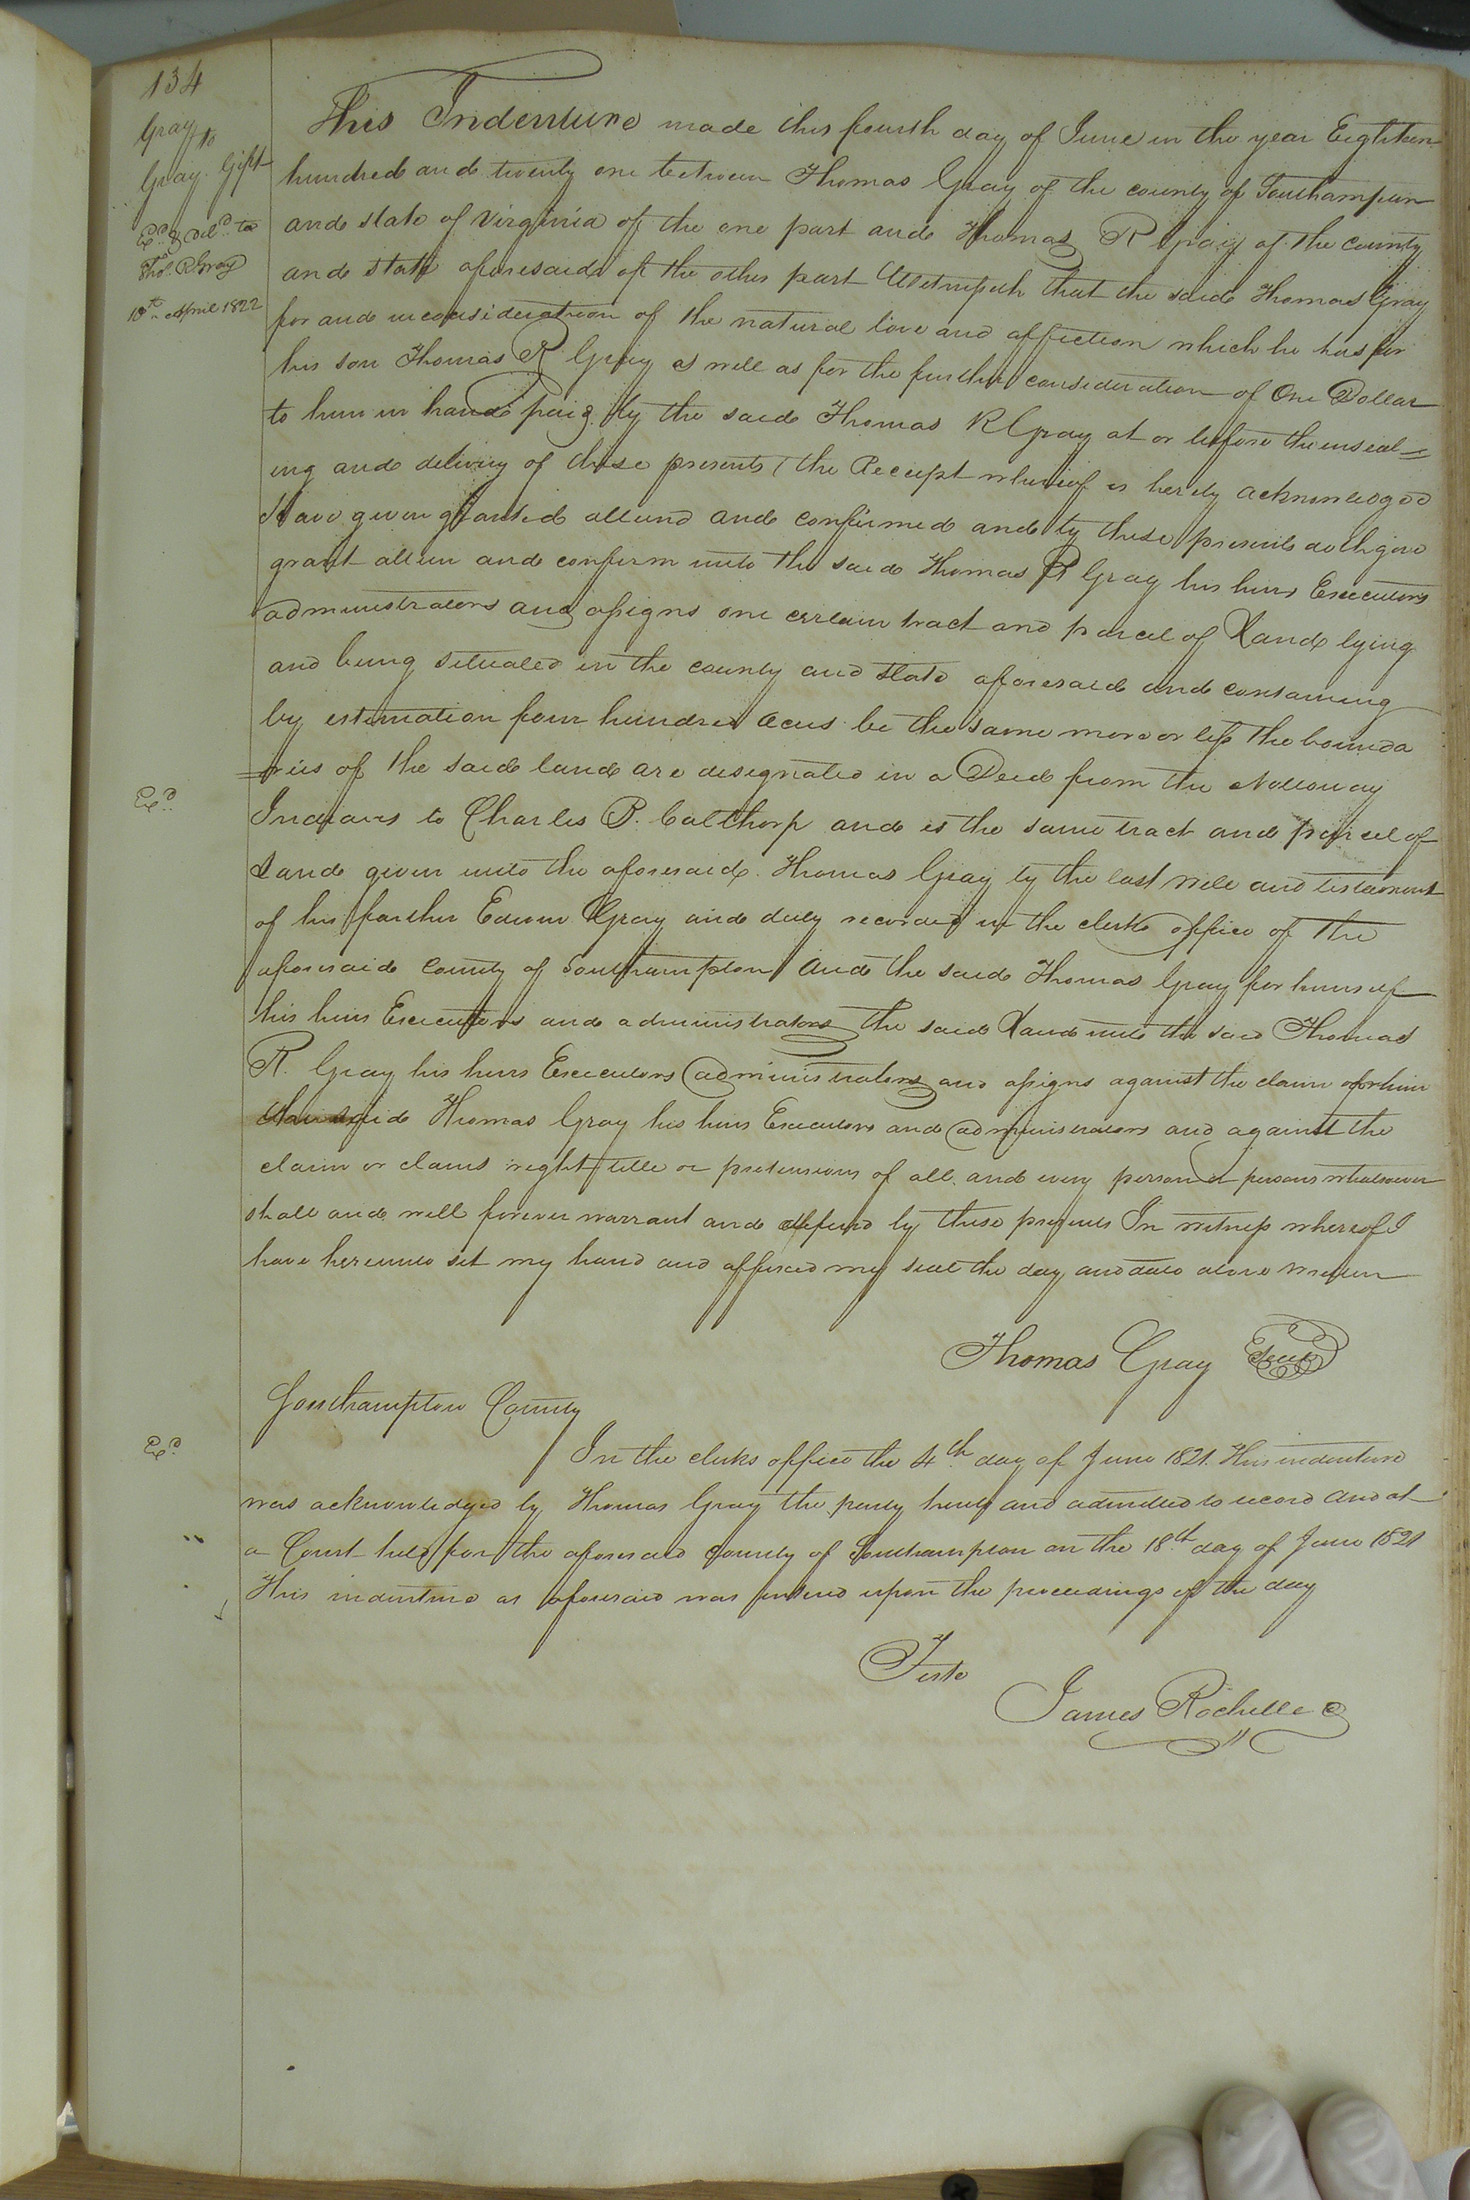 134
Gray to
Gray Gift
Exd & Deld to
Tho. R Gray
18th April 1822
This Indenture made this fourth day of June in the year Eighteen
hundred and twenty one between Thomas Gray of the county of Southampton
and state of Virginia of the one part and Thomas R Gray of the county
and state aforesaid of the other part Witnesseth that the said Thomas Gray
for and in consideration of the natural love and affection which he has for
his son Thomas R Gray as well as for the further consideration of One Dollar
to him in hand paid by the said Thomas R Gray at or before the enseal=
ing and delivery of these presents (the Receipt whereof is hereby acknowledged
Have given granted aliend and confirmed and by these presents doth give
grant alien and confirm unto the said Thomas R Gray his heirs Executors
administrators and assigns one certain tract and parcel of Land lying
and being situated in the county and state aforesaid and containing
by estimation four hundred acres be the same more or less the bounda
=ries of the said land are designated in a Deed from the Nottoway
Exd
Indians to Charles B. Calthorp and is the same tract and parcel of
Land given unto the aforesaid Thomas Gray by the last will and testament
of his farther Edwin Gray and duly recorded in the clerks office of the
aforesaid county of Southampton And the said Thomas Gray for himself
his heirs Executors and administrators the said Land unto the said Thomas
R. Gray his heirs Executors administrators and assigns against the claim of him
the said Thomas Gray his heirs Executors and administrators and against the
claim or claims right title or pretensions of all and every person or persons whatsoever
shall and will forever warrant and defend by these presents In witness whereof I
have hereunto set my hand and affixed my seal the day and date above written
Thomas Gray Seal
Southampton County
Exd
In the clerks office the 4th day of June 1821. This indenture
was acknowledged by Thomas Gray the party hereto and admitted to record and at
a Court held for the aforesaid county of Southampton on the 18th day of June 1821
This indenture as aforesaid was entered upon the proceedings of the day
Teste
James Rochelle C